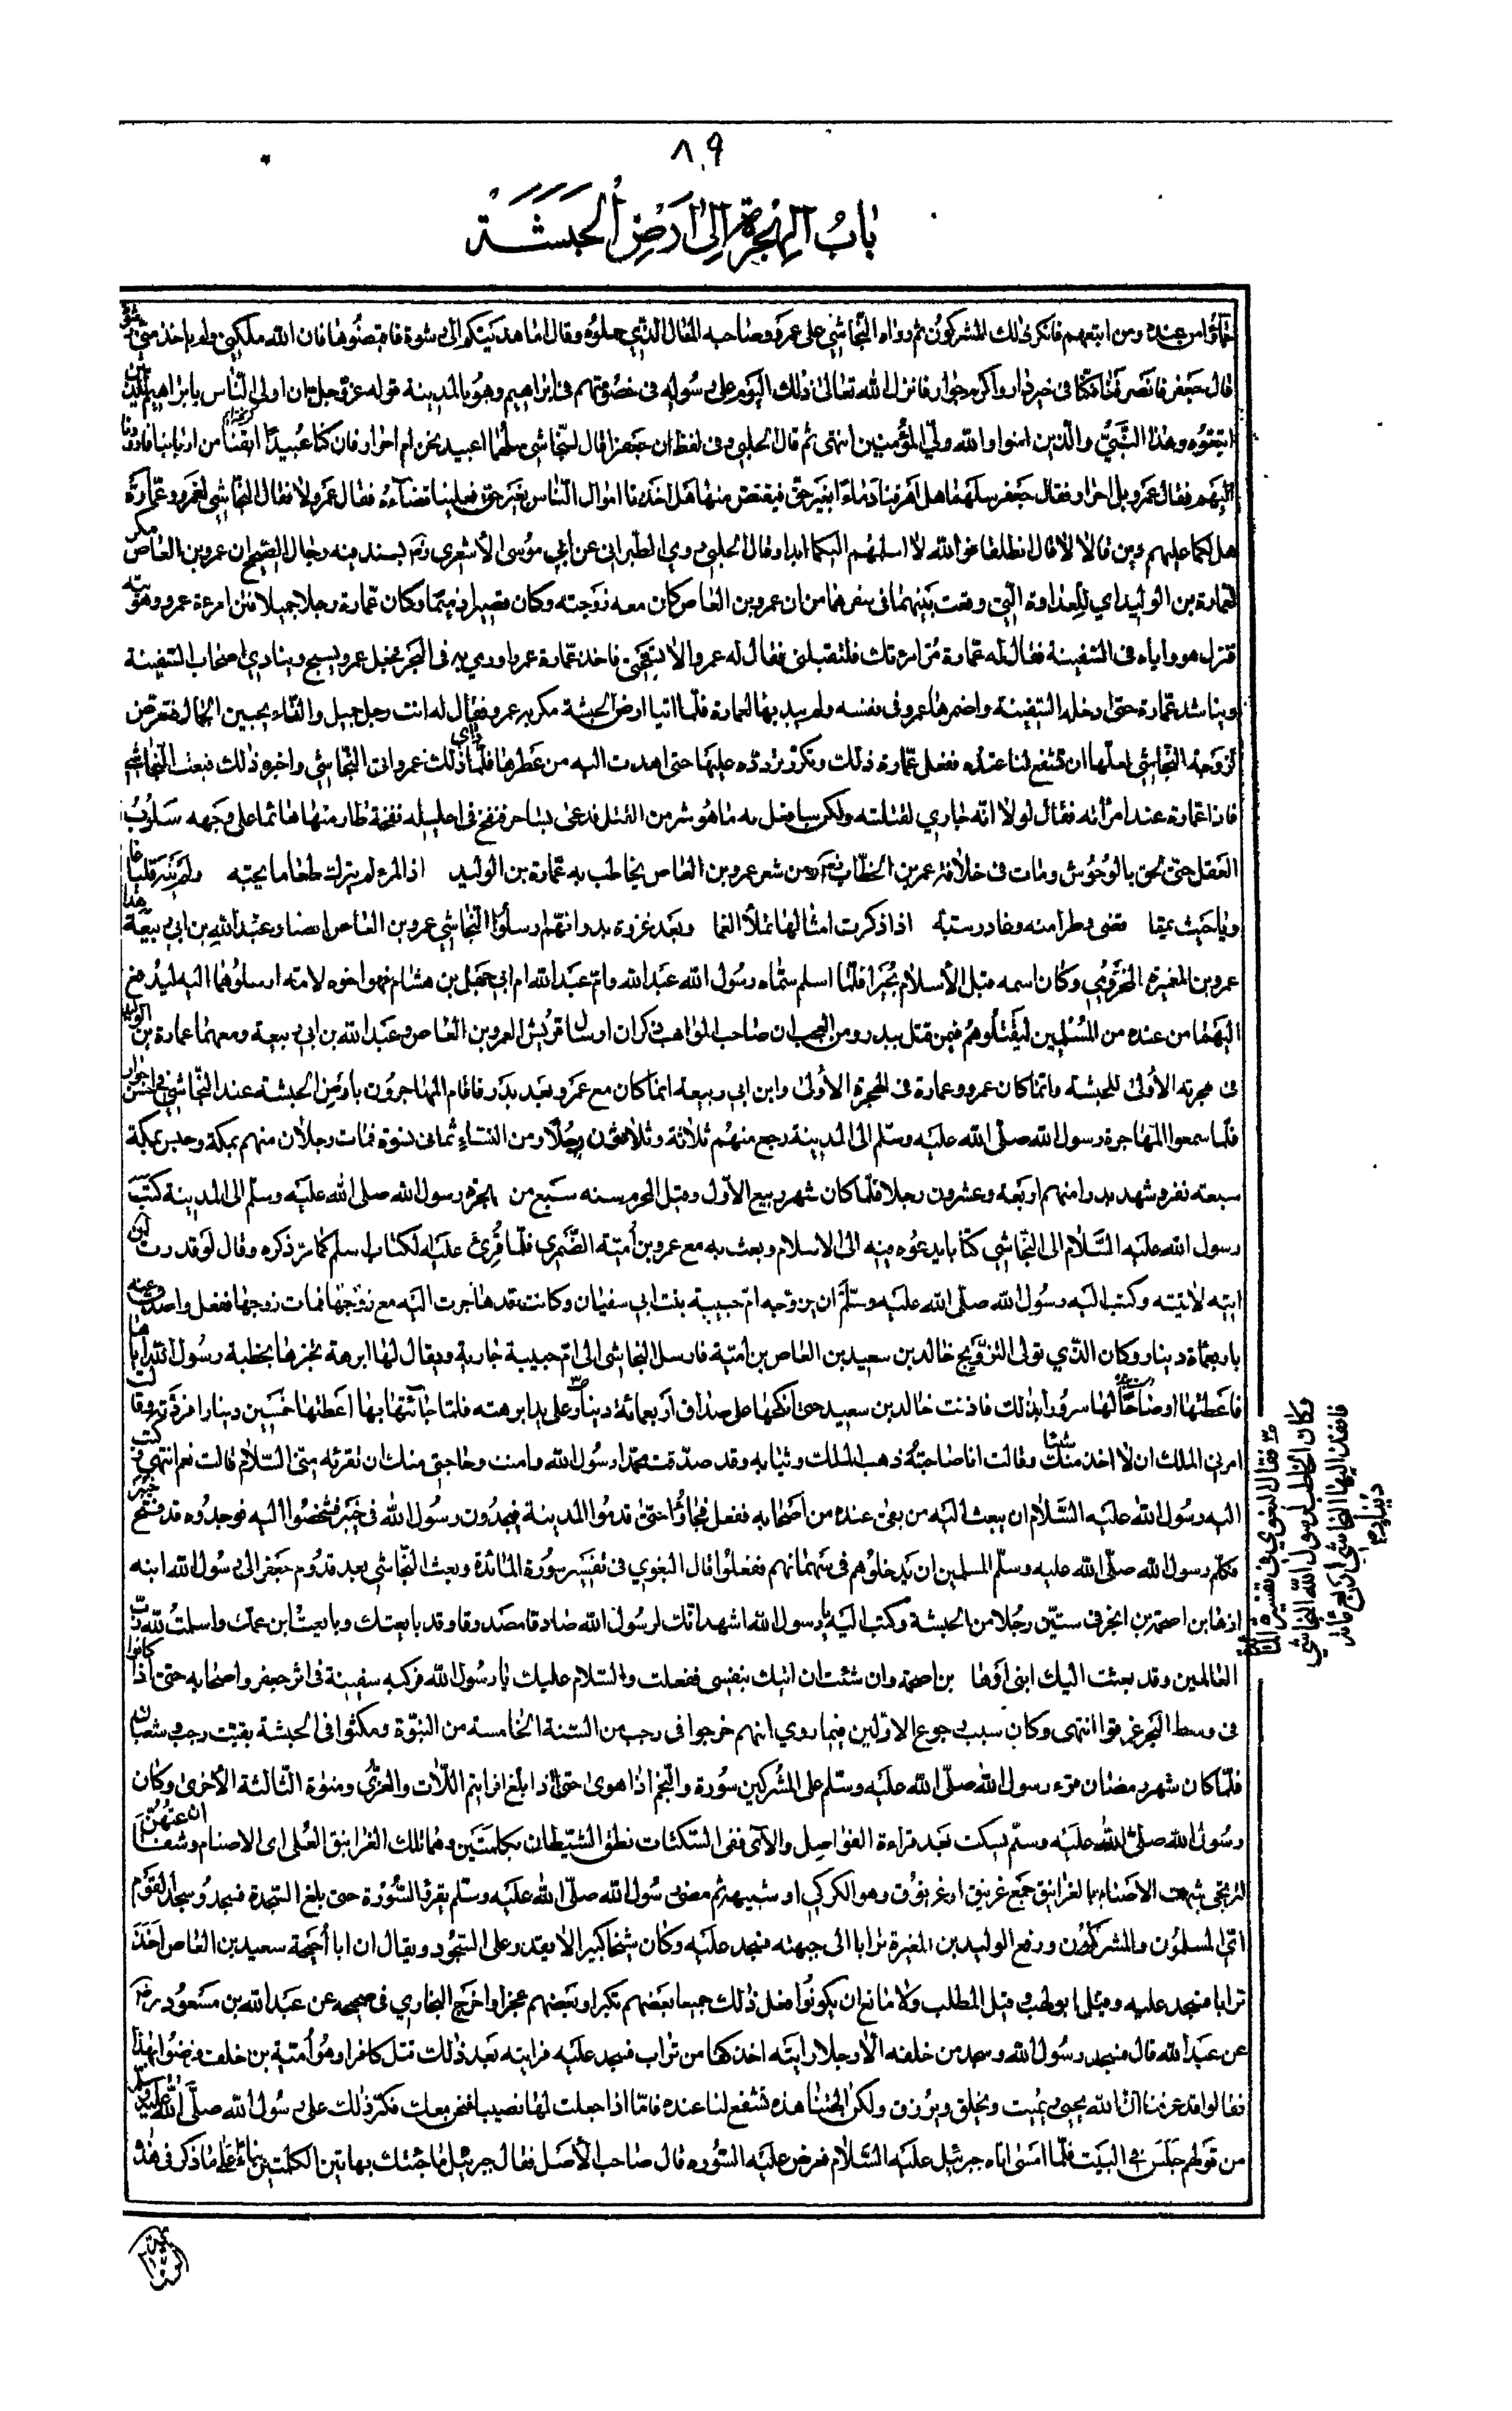 ٨٠٩
باب الهجرة الى ارض الحبشة
من عنده ومن اتبعهم فانكر ذلك المشركون ثم رد النجاشي على عمرو وصاحبه المال الذي حملوه وقال انما هديتكم الى رشوة فاقبضوها فان الله ملكني ولم ياخذ مني رشوة
قال جعفر فانصرفنا فكنا في خير دار واكرم جوار فانزل الله تعالى ذلك اليوم على رسوله في خصومتهم في ابراهيم وهو بالمدينة قوله عز وجل ان اولى الناس بابراهيم للذين
اتبعوه وهذا النبي والذين امنوا والله ولي المؤمنين انتهى ثم قال الحلبي وفي لفظ ان جعفرا قال للنجاشي سلهما اعبيد نحن ام احرار فان كنا عبيدا ابقنا من اربابنا فارددنا
اليهم فقال عمرو بل احرار فقال جعفر سلهما هل اهرقنا دماء بغير حق فيقتص منا هل اخذنا اموال الناس بغير حق فعلينا قضاءه فقال عمرو لا فقال النجاشي لعمرو وعمارة
هل لكما عليهم دين قالا لا قال انطلقا فوالله لا اسلمهم اليكما ابدا وقال الحلبي روى الطبراني عن ابي موسى الاشعري رضه بسند فيه رجال الصحيح ان عمرو بن العاص مكر
لعمارة بن الوليد اي للعداوة التي وقعت بينهما في سفرهما من ان عمرو بن العاص كان معه زوجته وكان قصيرا دميما وكان عمارة رجلا جميلا فتن امرءة عمرو وهوته
فنزل هو واياه في السفينة فقال له عمارة مر امرءتك فلتقبلني فقال له عمرو الا تستحيي فاخذ عمارة عمرا ورمى به في البحر فجعل عمرو يسبح وينادي اصحاب السفينة
ويناشد عمارة حتى ادخله السفينة واضمرها عمرو في نفسه ولم يبدها لعمارة فلما اتيا ارض الحبشة مكر به عمرو فقال له انت رجل جميل والنساء يحببن الجمال فتعرض
لزوجة النجاشي لعلها ان تشفع لنا عنده ففعل عمارة ذلك وتكرر تردده عليها حتى اهدت اليه من عطرها فلما راى ذلك عمرو اتى النجاشي واخبره ذلك فبعث النجاشي
فاذا عمارة عند امرأته فقال لولا انه جاري لقتلته ولكن سافعل به ما هو شر من القتل فدعى بساحر فنفخ في احليله نفخة طار منها هائما على وجهه مسلوب
العقل حتى لحق بالوحوش ومات في خلافة عمر بن الخطاب ومن شعر عمرو بن العاص يخاطب به عمارة بن الوليد اذا المرء لم يترك طعاما يحبه ولم ينه قلبا
غاويا حيث يمما قضى وطرا منه وغادر سبة اذا ذكرت امثالها تملأ الفما وبعد غزوة بدر انهم ارسلوا للنجاشي عمرو بن العاص ايضا وعبد الله بن ابي ربيعة
عمرو بن المغيرة المخزومي وكان اسمه قبل الاسلام بجيرا فلما اسلم سماه رسول الله عبد الله وام عبد الله ام ابي جهل بن هشام فهو اخوه لامه ارسلوهما اليه ليدفع
اليهما من عنده من المسلمين ليقتلوهم فيمن قتل ببدر ومن العجب ان صاحب المواهب ذكر ان ارسال قريش لعمرو بن العاص وعبد الله بن ابي ربيعة ومعهما عمارة بن الوليد
في هجرته الاولى للحبشة وانما كان عمرو وعمارة في الهجرة الاولى وابن ابي ربيعة انما كان مع عمرو بعد بدر فاقام المهاجرون بارض الحبشة عند النجاشي في احسن جوار
فلما سمعوا المهاجرة رسول الله صلى الله عليه وسلم الى المدينة رجع منهم ثلاثة وثلاثون رجلا ومن النساء ثماني نسوة فمات رجلان منهم بمكة وحبس بمكة
سبعة نفر وشهد بدرا منهم اربعة وعشرون رجلا فلما كان شهر ربيع الاول وقيل المحرم سنة سبع من الهجرة رسول الله صلى الله عليه وسلم الى المدينة كتب
رسول الله عليه السلام الى النجاشي كتابا يدعوه فيه الى الاسلام وبعث به مع عمرو بن أمية الضمري فلما قرئ عليه الكتاب اسلم كما مر ذكره وقال لو قدرت ان
اتيه لاتيته وكتب اليه رسول الله صلى الله عليه وسلم ان يزوجه ام حبيبة بنت ابي سفيان وكانت قد هاجرت اليه مع زوجها فمات زوجها ففعل واصدق عنه
باربعمائة دينار وكان الذي تولى التزويج خالد بن سعيد بن العاص بن امية فارسل النجاشي الى ام حبيبة جارية ويقال لها ابرهة تخبرها بخطبة رسول الله اياها
فاعطتها اوضاحا لها سرورا بذلك فاذنت خالد بن سعيد حتى انكحها على صداق اربعمائة دينار على يد ابرهة فلما جاءتها بها اعطتها خمسين دينارا فردته وقالت
امرني الملك ان لا اخذ منك شيئا وقالت انا صاحبة ذهب الملك وثيابه وقد صدقت محمدا رسول الله وامنت وحاجتي منك ان تقرئه مني السلام قالت نعم انتهى ثم كتب
اليه رسول الله عليه السلام ان يبعث اليه من بقي عنده من اصحابه ففعل فجاؤا حتى قدموا المدينة فيجدون رسول الله في خيبر فشخصوا اليه فوجدوه قد فتح خيبر
فكلم رسول الله صلى الله عليه وسلم المسلمين ان يدخلوهم في سهمانهم ففعلوا قال البغوي في تفسير سورة المائدة وبعث النجاشي بعد قدوم جعفر الى رسول الله ابنه
ازها بن اصحمة بن ابجر في ستين رجلا من الحبشة وكتب اليه يا رسول الله اشهد انك لرسول الله صادقا مصدقا وقد بايعتك وبايعت ابن عمك واسلمت لله رب
العالمين وقد بعثت اليك ابني ازها بن اصحمة وان شئت ان اتيك بنفسي فعلت والسلام عليك يا رسول الله فركبوا سفينة في اثر جعفر واصحابه حتى اذا كانوا
في وسط البحر غرقوا انتهى وكان سبب رجوع الاولين فيما روي انهم خرجوا في رجب من السنة الخامسة من النبوة ومكثوا في الحبشة بقيت رجب وشعبان
فلما كان شهر رمضان قرء رسول الله صلى الله عليه وسلم على المشركين سورة والنجم اذا هوى حتى اذا بلغ افرايتم اللات والعزى ومنوة الثالثة الاخرى وكان
رسول الله صلى الله عليه وسلم يسكت بعد قراءة الفواصل والآي ففي السكتات نطق الشيطان بكلمتين وهما تلك الغرانيق العلى اي الاصنام وان شفاعتهن
لترتجى شبهت الاصنام بالغرانيق جمع غرنيق او غرنوق وهو الكركي او شبيهه ثم مضى رسول الله صلى الله عليه وسلم بقرأ السورة حتى بلغ السجدة فسجد وسجد القوم
اي المسلمون والمشركون ورفع الوليد بن المغيرة ترابا الى جبهته فسجد عليه وكان شيخا كبيرا لا يقدر على السجود ويقال ان ابا أحيحة سعيد بن العاص اخذ
ترابا فسجد عليه وقيل ابو لهب وقيل المطلب ولا مانع ان يكونوا فعل ذلك جميعا بعضهم تكبرا وبعضهم عجزا واخرج البخاري في صحيحه عن عبد الله بن مسعود رضه
عن عبد الله قال فسجد رسول الله وسجد من خلفه الا رجلا رايته اخذ كفا من تراب فسجد عليه فرايته بعد ذلك قتل كافرا وهو أمية بن خلف فرضوا بهذا
فقالوا قد عرفنا ان الله يحيي ويميت ويخلق ويرزق ولكن الهتنا هذه تشفع لنا عنده فاما اذا جعلت لها نصيبا فنحن معك فكبر ذلك على رسول الله صلى الله عليه وسلم
من قولهم جلس في البيت فلما امسى اتاه جبرئيل عليه السلام فعرض عليه السورة قال صاحب الاصل فقال جبرئيل ما جئتك بهاتين الكلمتين بناء على ما ذكر في هذه
فقال البغوي في تفسير
وكان الخاطب لرسول الله النجاشي
فانفذ اليها النجاشي اربع مائة
دينار